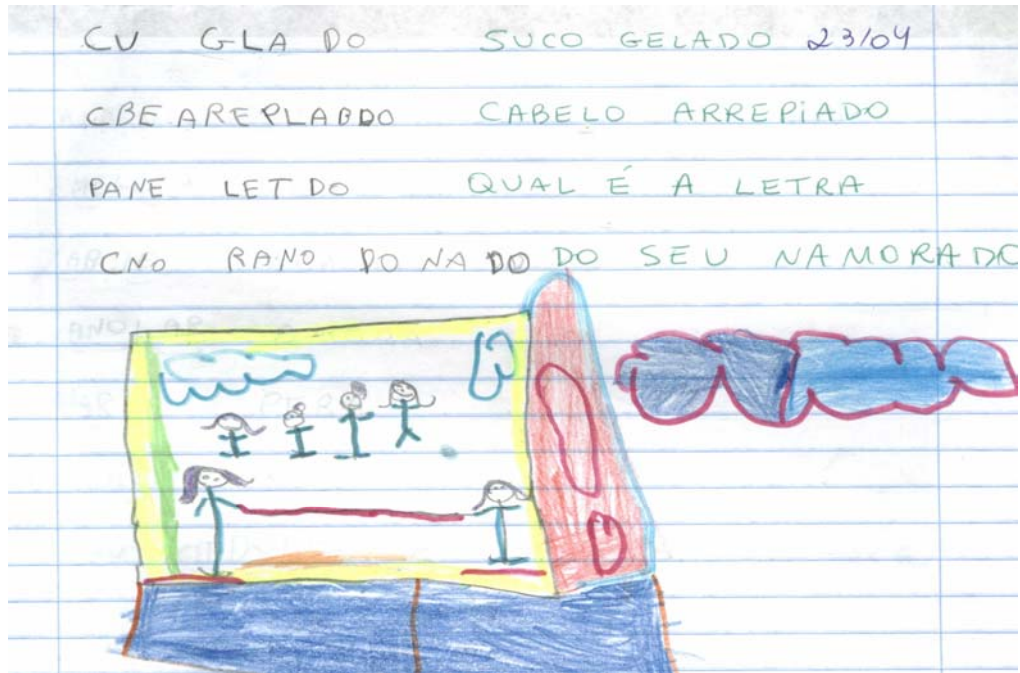 CU GLA DO SUCO GELADO 23/04
CBE AREPLABDO CABELO ARREPiADO
PANE LET DO QUAL É A LETRA
CNO RANO DO NA DO DO SEU NAMORADO